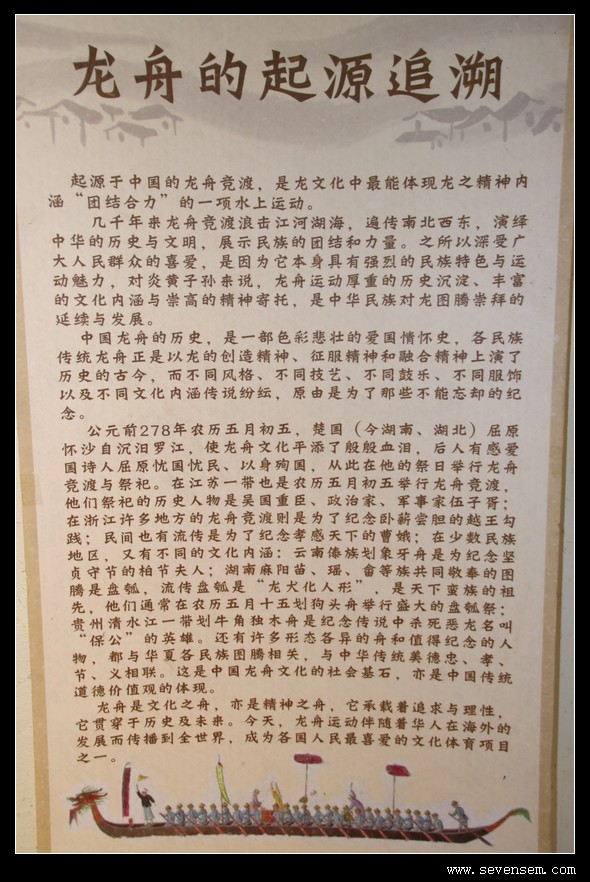 龙舟的起源追溯
起源于中国的龙舟竞渡，是龙文化中最能体现龙之精神内
涵“团结合力”的一项水上运动。
几千年来龙舟竞渡浪击江河湖海，遍传南北西东，演绎
中华的历史与文明，展示民族的团结和力量。之所以深受广
大人民群众的喜爱，是因为它本身具有强烈的民族特色与运
动魅力，对炎黄子孙来说，龙舟运动厚重的历史沉淀、丰富
的文化内涵与崇高的精神寄托，是中华民族对龙图腾崇拜的
延续与发展。
中国龙舟的历史，是一部色彩悲壮的爱国情怀史，各民族
传统龙舟正是以龙的创造精神、征服精神和融合精神上演了
历史的古今，而不同风格、不同技艺、不同鼓乐、不同服饰
以及不同文化内涵传说纷纭，原由是为了那些不能忘却的纪
念。
公元前278年农历五月初五，楚国（今湖南、湖北）屈原
怀沙自沉汨罗江，使龙舟文化平添了殷殷血泪，后人有感爱
国诗人屈原忧国忧民、以身殉国，从此在他的祭日举行龙舟
竞渡与祭祀。在江苏一带也是农历五月初五举行龙舟竞渡，
他们祭祀的历史人物是吴国重臣、政治家、军事家伍子胥；
在浙江许多地方的龙舟竞渡则是为了纪念卧薪尝胆的越王勾
践；民间也有流传是为了纪念孝感天下的曹娥；在少数民族
地区，又有不同的文化内涵：云南傣族划象牙舟是为纪念坚
贞守节的柏节夫人；湖南麻阳苗、瑶、畲等族共同敬奉的图
腾是盘瓠，流传盘瓠是“龙犬化人形”，是天下蛮族的祖
先，他们通常在农历五月十五划狗头舟举行盛大的盘瓠祭；
贵州清水江一带划牛角独木舟是纪念传说中杀死恶龙名叫
“保公”的英雄。还有许多形态各异的舟和值得纪念的人
物，都与华夏各民族图腾相关，与中华传统美德忠、孝、
节、义相联。这是中国龙舟文化的社会基石，亦是中国传统
道德价值观的体现。
龙舟是文化之舟，亦是精神之舟，它承载着追求与理性，
它贯穿于历史及未来。今天，龙舟运动伴随着华人在海外的
发展而传播到全世界，成为各国人民最喜爱的文化体育项目
之一。
www.sevensem.com